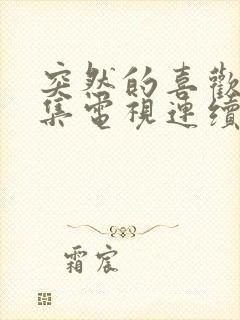 突然的喜歡
集電視連續
霜宸